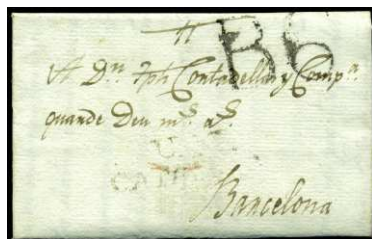 B6
A Dn Jph Contadellas y Compa
quande Deu ms as
Barcelona